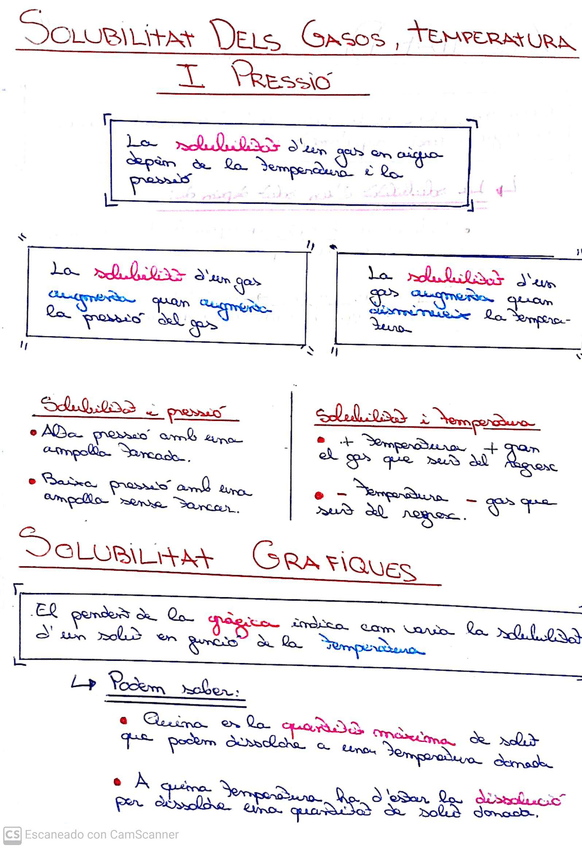 SOLUBILITAT DELS GASOS, TEMPERATURA
I PRESSIÓ
La solubulitat d'un gas en aigua
depèn de la temperatura i la
pressió
La solubilitat d'un gas
augmenta quan augmenta
la pressió del gas
La solubilitat d'un
gas augmenta quan
disminueix la tempera-
tura
Solubilitat i pressió
• Alta pressió amb una
ampolla tancada.
• Baixa pressió amb una
ampolla sense tancar.
Solubilitat i temperatura
• + temperatura + gran
el gas que surt del refresc
• - temperatura - gas que
surt del refresc.
SOLUBILITAT GRAFIQUES
El pendent de la gràfica indica com varia la solubilitat
d'un solut en funció de la temperatura
↳ Podem saber:
• Quina es la quantitat màxima de solut
que podem dissoldre a una temperatura donada
• A quina temperatura ha d'estar la dissolució
per dissoldre una quantitat de solut donada.
CS Escaneado con CamScanner